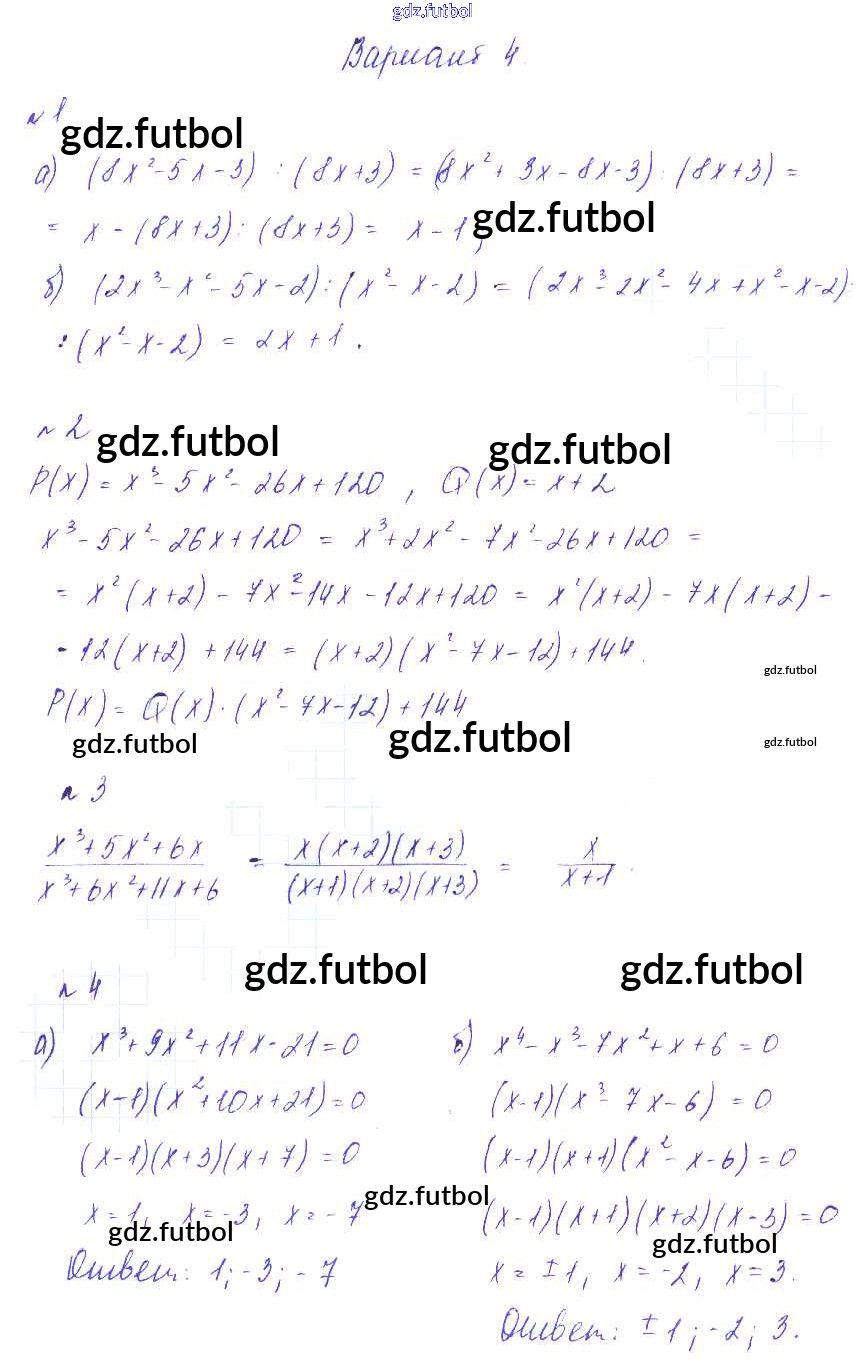 gdz.futbol
Вариант 4
№1
gdz.futbol
а) (8x²-5x-3) : (8x+3) = (8x²+3x-8x-3) : (8x+3) =
= x - (8x+3) : (8x+3) = x-1;
gdz.futbol
б) (2x³-x²-5x-2) : (x²-x-2) = (2x³-2x²-4x+x²-x-2) :
: (x²-x-2) = 2x+1.
№2
gdz.futbol gdz.futbol
P(x) = x³-5x²-26x+120, Q(x) = x+2
x³-5x²-26x+120 = x³+2x²-7x²-26x+120 =
= x²(x+2) - 7x²-14x-12x+120 = x²(x+2) - 7x(x+2) -
- 12(x+2) + 144 = (x+2)(x²-7x-12)+144.
gdz.futbol
P(x) = Q(x)·(x²-7x-12)+144
gdz.futbol gdz.futbol gdz.futbol
№3
x³+5x²+6x / x³+6x²+11x+6 = x(x+2)(x+3) / (x+1)(x+2)(x+3) = x / x+1.
gdz.futbol gdz.futbol
№4
а) x³+9x²+11x-21=0
(x-1)(x²+10x+21)=0
(x-1)(x+3)(x+7)=0
x=1, x=-3, x=-7
gdz.futbol
gdz.futbol
Ответ: 1; -3; -7
б) x⁴-x³-7x²+x+6=0
(x-1)(x³-7x-6)=0
(x-1)(x+1)(x²-x-6)=0
(x-1)(x+1)(x+2)(x-3)=0
gdz.futbol
x=±1, x=-2, x=3.
Ответ: ±1; -2; 3.